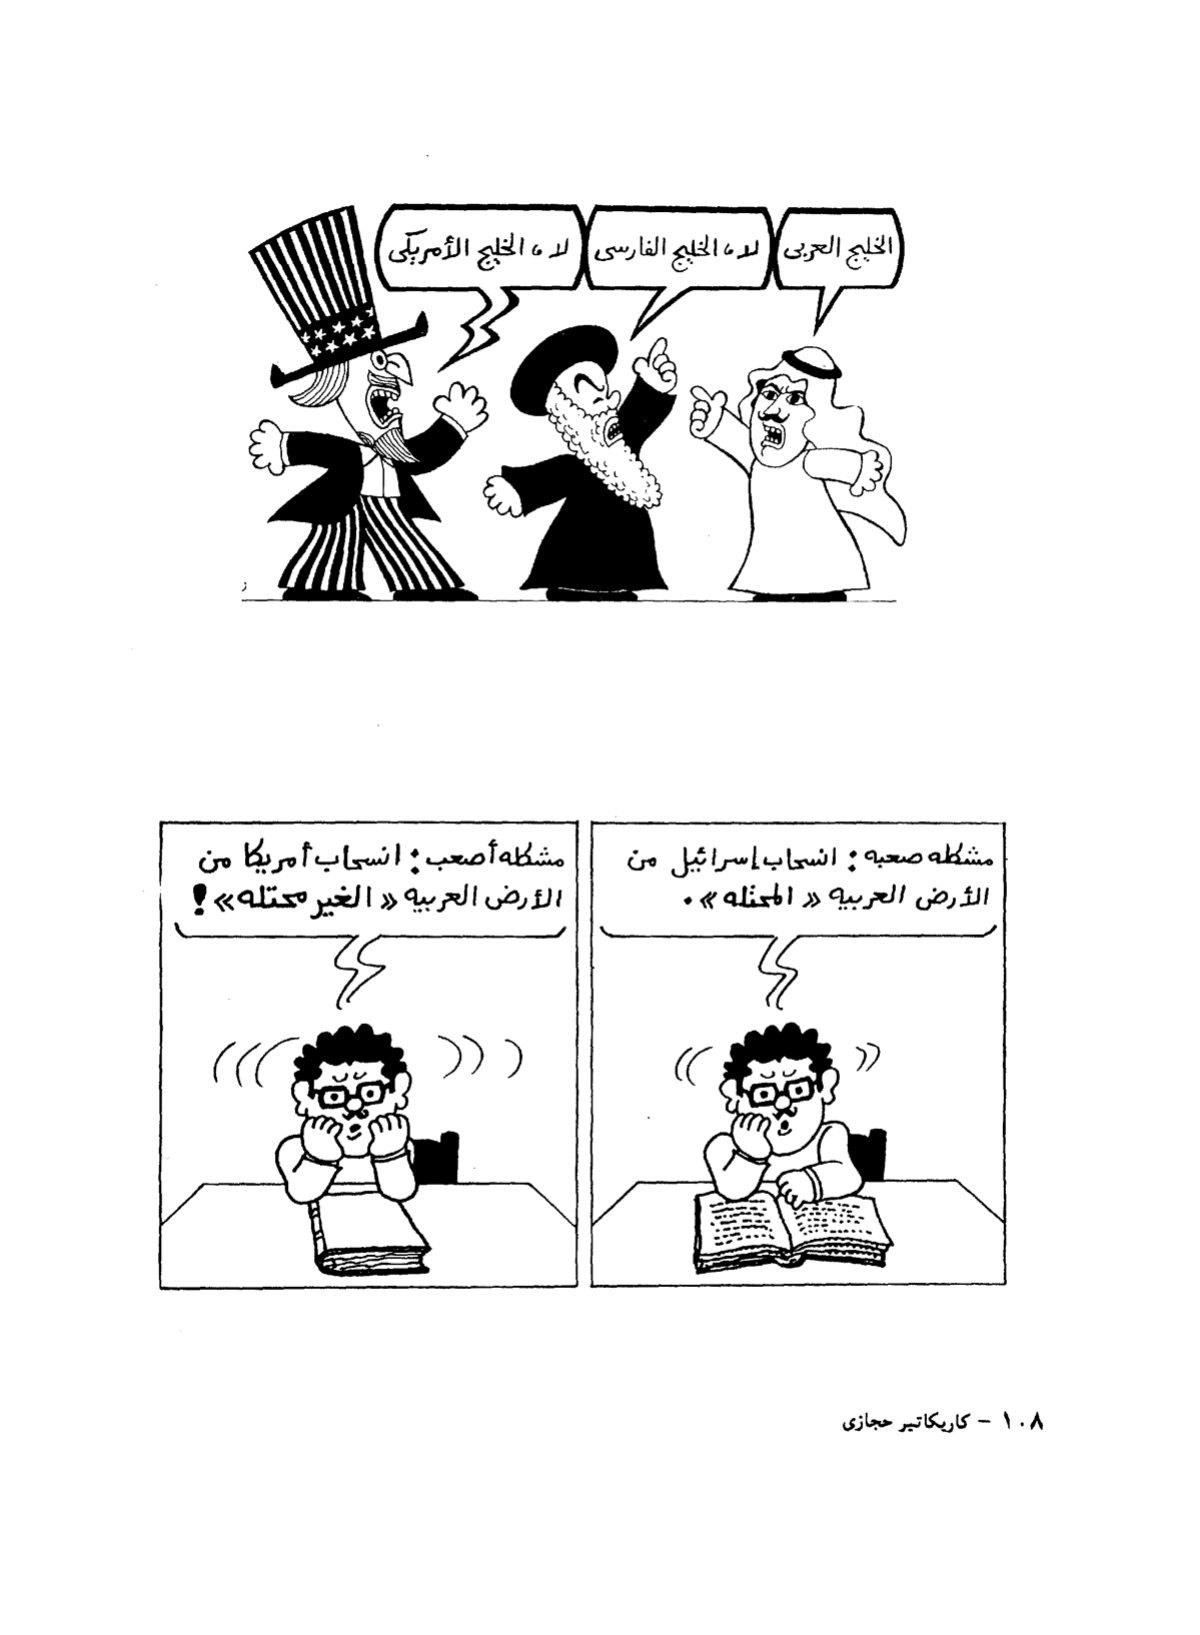 الخليج العربى
لا، الخليج الفارسى
لا، الخليج الأمريكى
مشكله صعبه : انسحاب إسرائيل من
الأرض العربيه « المحتله » .
مشكله أصعب : انسحاب أمريكا من
الأرض العربيه « الغير محتله » !
١٠٨ - كاريكاتير حجازى